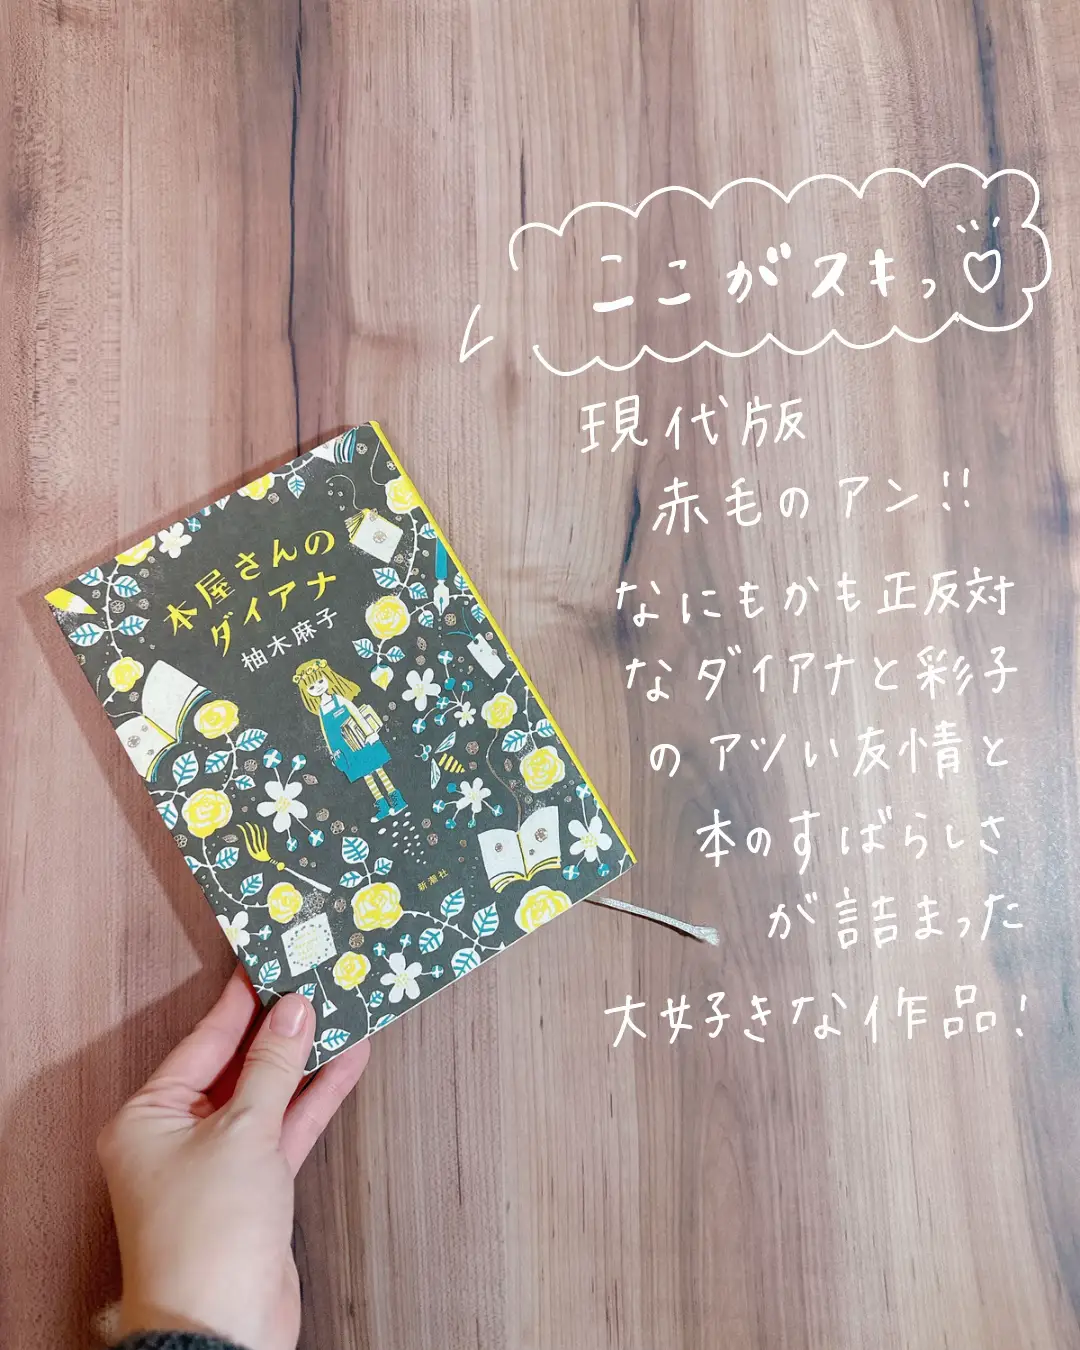 ここがスキっ♡
現代版
赤毛のアン!!
なにもかも正反対
なダイアナと彩子
のアツい友情と
本のすばらしさ
が詰まった
大好きな作品!
本屋さんの
ダイアナ
柚木麻子
新潮社